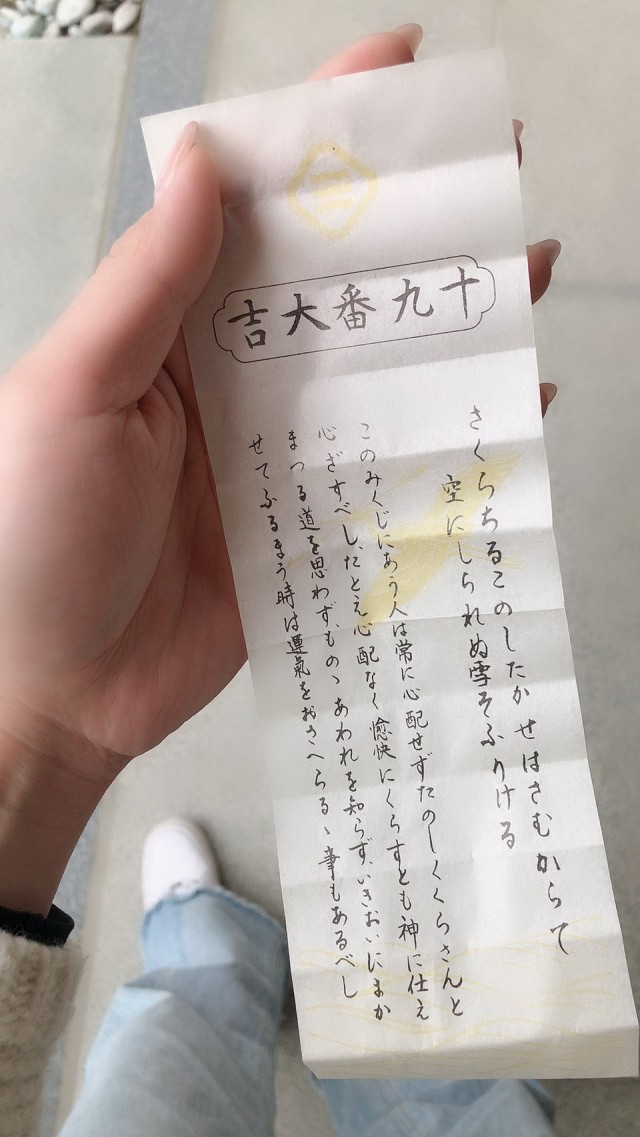 十九番大吉
さくらちるこのしたかせはさむからて
空にしられぬ雪そふりける
このみくじにあう人は常に心配せずたのしくくらさんと
心ざすべし、たとえ心配なく愉快にくらすとも神に仕え
まつる道を思わず、ものゝあわれを知らず、いきおいにまか
せてふるまう時は運氣をおさへらるゝ事もあるべし